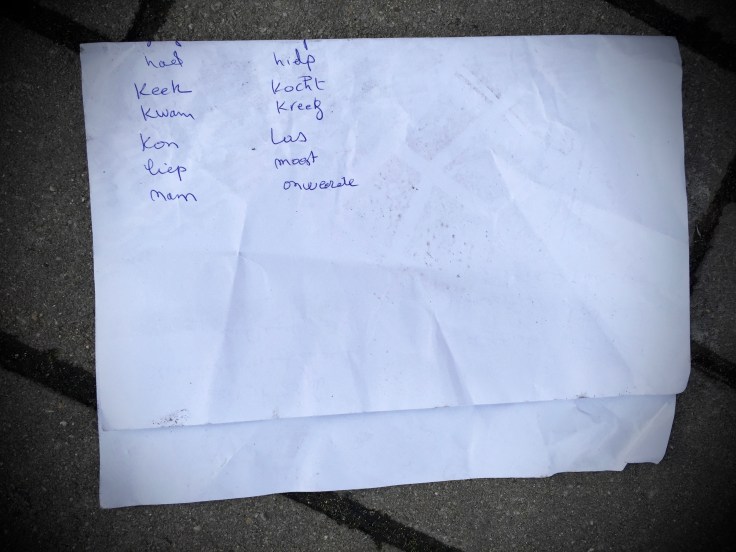 had hielp
keek kocht
kwam kreeg
kon Las
liep moest
nam onweerde